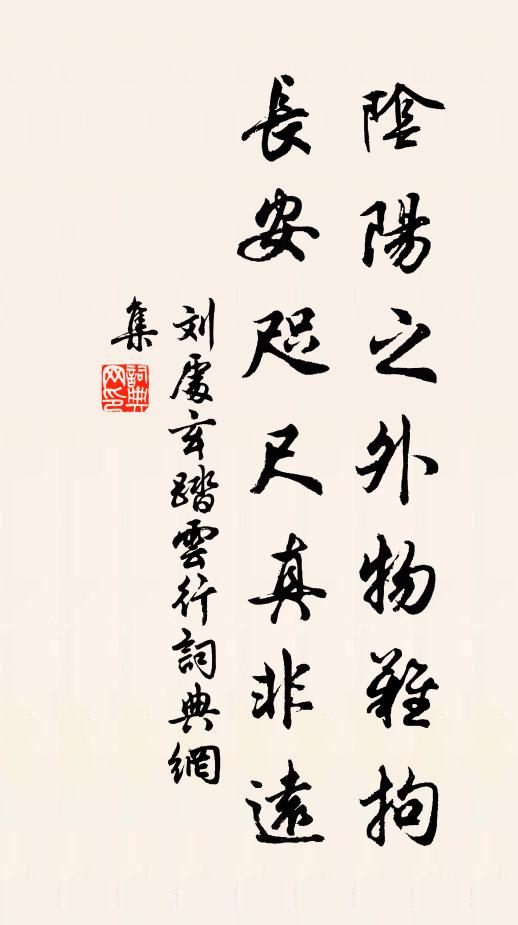 陰陽之外物難拘
長安咫尺真非遠
刘處玄踏雲行詞典網
集
詞典
网印